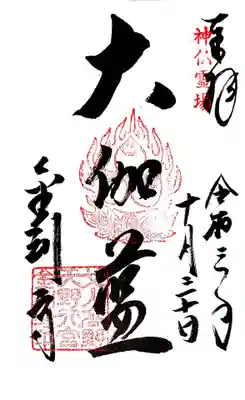 奉拝
神仏霊場
令和三年
十月
大伽藍
金剛寺